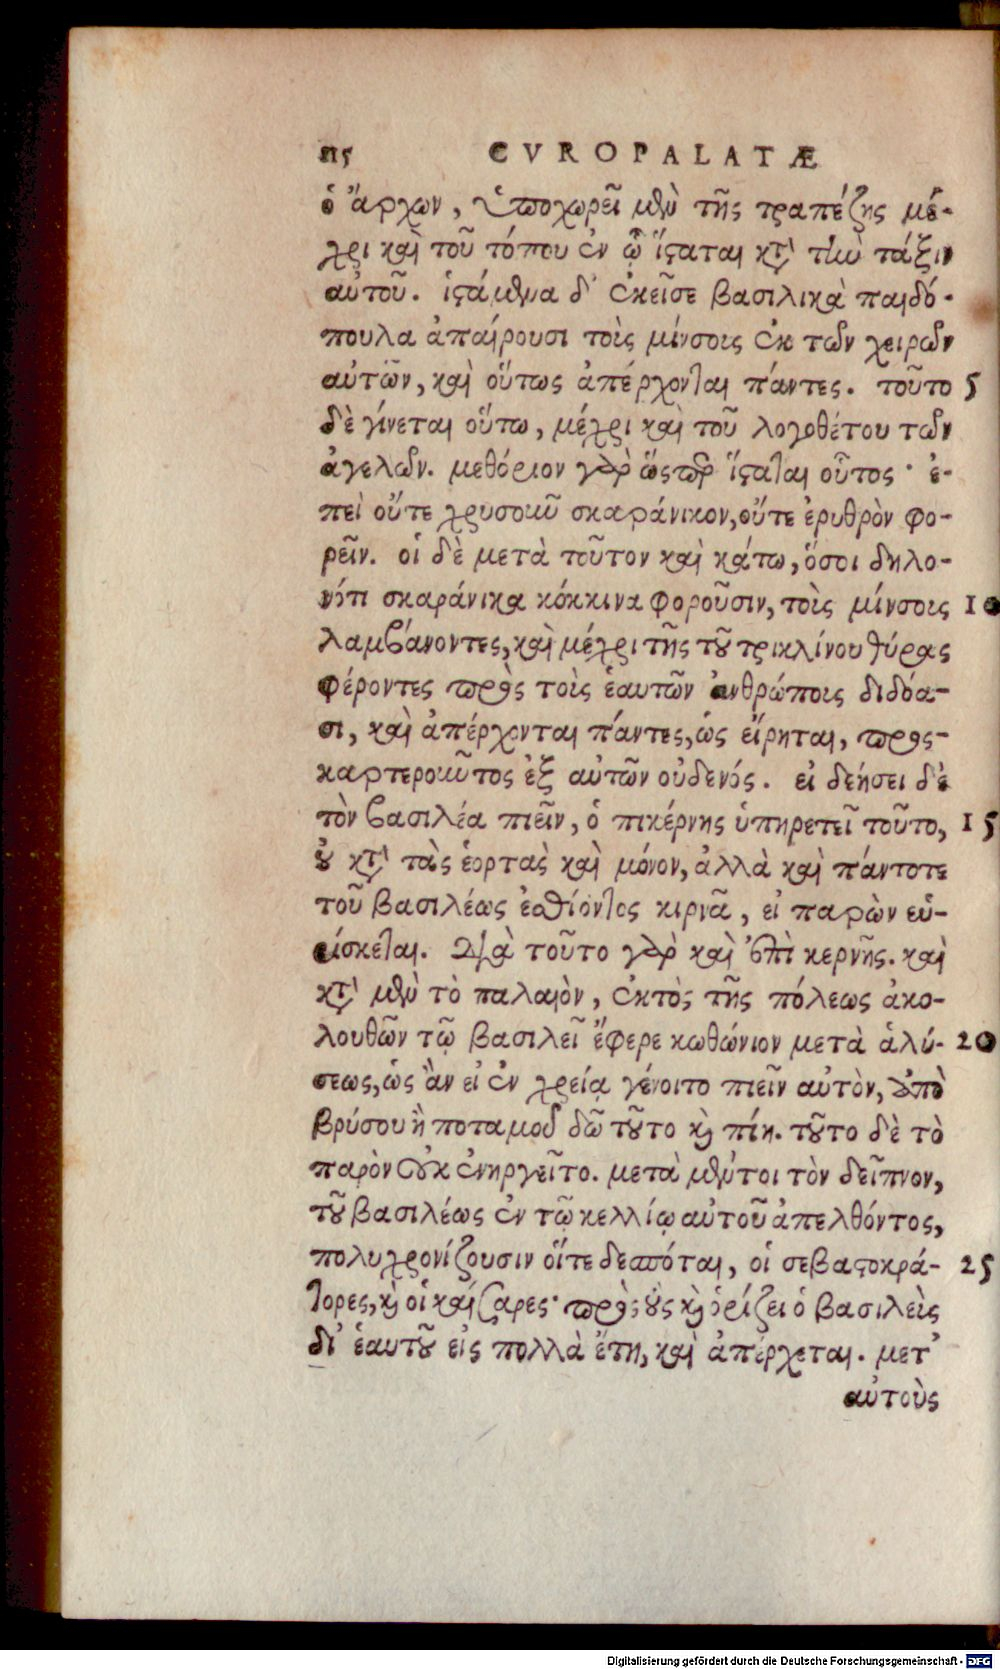 πς CVROPALATÆ
ὁ ἄρχων, ὑποχωρεῖ μὲν τῆς τραπέζης μέ-
χρι καὶ τοῦ τόπου ἐν ᾧ ἵσταται κατὰ τὴν τάξιν
αὐτοῦ. ἱστάμενα δ' ἐκεῖσε βασιλικὰ παιδό-
πουλα ἀπαίρουσι τοὶς μίνσοις ἐκ τῶν χειρῶν
αὐτῶν, καὶ οὕτως ἀπέρχονται πάντες. τοῦτο 5
δὲ γίνεται οὕτω, μέχρι καὶ τοῦ λογοθέτου τῶν
ἀγελῶν. μεθόριον γὰρ ὥσπερ ἵσταται οὗτος· ἐ-
πεὶ οὔτε χρυσοκοῦ σκαράνικον, οὔτε ἐρυθρὸν φο-
ρεῖν. οἱ δὲ μετὰ τοῦτον καὶ κάτω, ὅσοι δηλο-
νότι σκαράνικα κόκκινα φοροῦσιν, τοὶς μίνσοις 10
λαμβάνοντες, καὶ μέχρι τῆς τοῦ τρικλίνου θύρας
φέροντες πρὸς τοὶς ἑαυτῶν ἀνθρώποις διδόα-
σι, καὶ ἀπέρχονται πάντες, ὡς εἴρηται, προς-
καρτεροῦντος ἐξ αὐτῶν οὐδενός. εἰ δεήσει δὲ
τὸν βασιλέα πιεῖν, ὁ πικέρνης ὑπηρετεῖ τοῦτο, 15
οὐ κατὰ τὰς ἑορτὰς καὶ μόνον, ἀλλὰ καὶ πάντοτε
τοῦ βασιλέως ἐσθίοντος κιρνᾶ, εἰ παρὼν εὑ-
ρίσκεται. Διὰ τοῦτο γὰρ καὶ ἐπὶ κερνῆς. καὶ
κατὰ μὲν τὸ παλαιὸν, ἐκτὸς τῆς πόλεως ἀκο-
λουθῶν τῷ βασιλεῖ ἔφερε κωθώνιον μετὰ ἁλύ- 20
σεως, ὡς ἂν εἰ ἐν χρείᾳ γένοιτο πιεῖν αὐτὸν, ἀπὸ
βρύσου ἢ ποταμοῦ δῶ τοῦτο καὶ πίη. τοῦτο δὲ τὸ
παρὸν οὐκ ἐνηργεῖτο. μετὰ μέντοι τὸν δεῖπνον,
τοῦ βασιλέως ἐν τῷ κελλίῳ αὐτοῦ ἀπελθόντος,
πολυχρονίζουσιν οἵτε δεσπόται, οἱ σεβαστοκρά- 25
τορες, καὶ οἱ καίσαρες· πρὸς οὓς καὶ ὁρίζει ὁ βασιλεὺς
δι' ἑαυτοῦ εἰς πολλὰ ἔτη, καὶ ἀπέρχεται. μετ'
αὐτοὺς
Digitalisierung gefördert durch die Deutsche Forschungsgemeinschaft - DFG